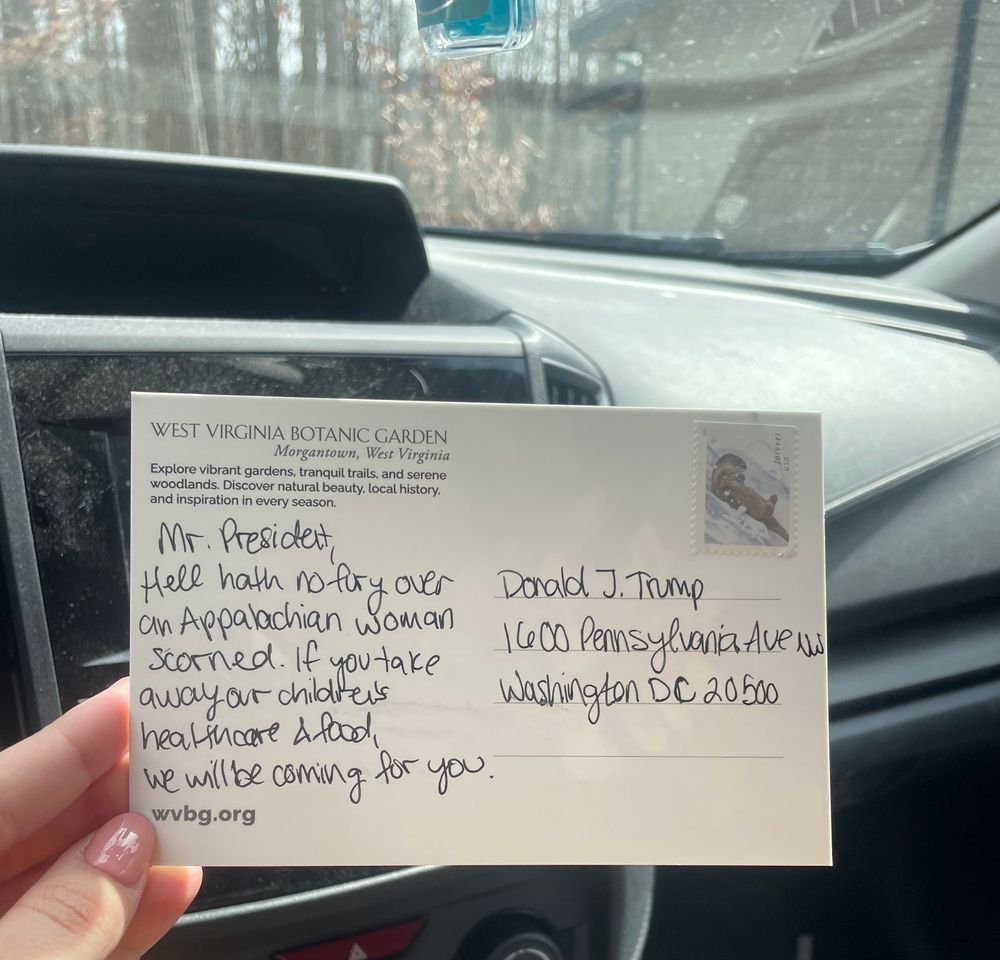 WEST VIRGINIA BOTANIC GARDEN
Morgantown, West Virginia
Explore vibrant gardens, tranquil trails, and serene
woodlands. Discover natural beauty, local history,
and inspiration in every season.
Mr. President,
Hell hath no fury over
an Appalachian woman
scorned. If you take
away our children's
healthcare & food,
we will be coming for you.
wvbg.org
forever
USA
Donald J. Trump
1600 Pennsylvania Ave NW
Washington DC 20500